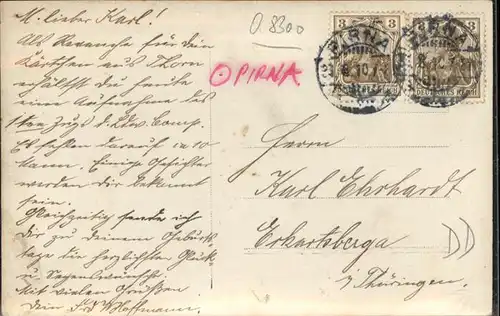 M. lieber Karl!
Als Revanche für dein
Kärtchen aus Thorn
erhältst du heute
eine Aufnahme des
Zugs d. Ldw. Comp.
Es fehlen darauf ca 10
Mann. Einige Gesichter
werden dir bekannt
sein.
Gleichzeitig sende ich
Dir zu deinem Geburts-
tage die herzlichsten Glück-
u. Segenswünsche.
Mit vielen Grüßen
Dein Hoffmann.
O. 8300
O PIRNA
3 3
PIRNA
8.10.
DEUTSCHES REICH
Herrn
Karl Ehrhardt
Eckartsberga
Thüringen.